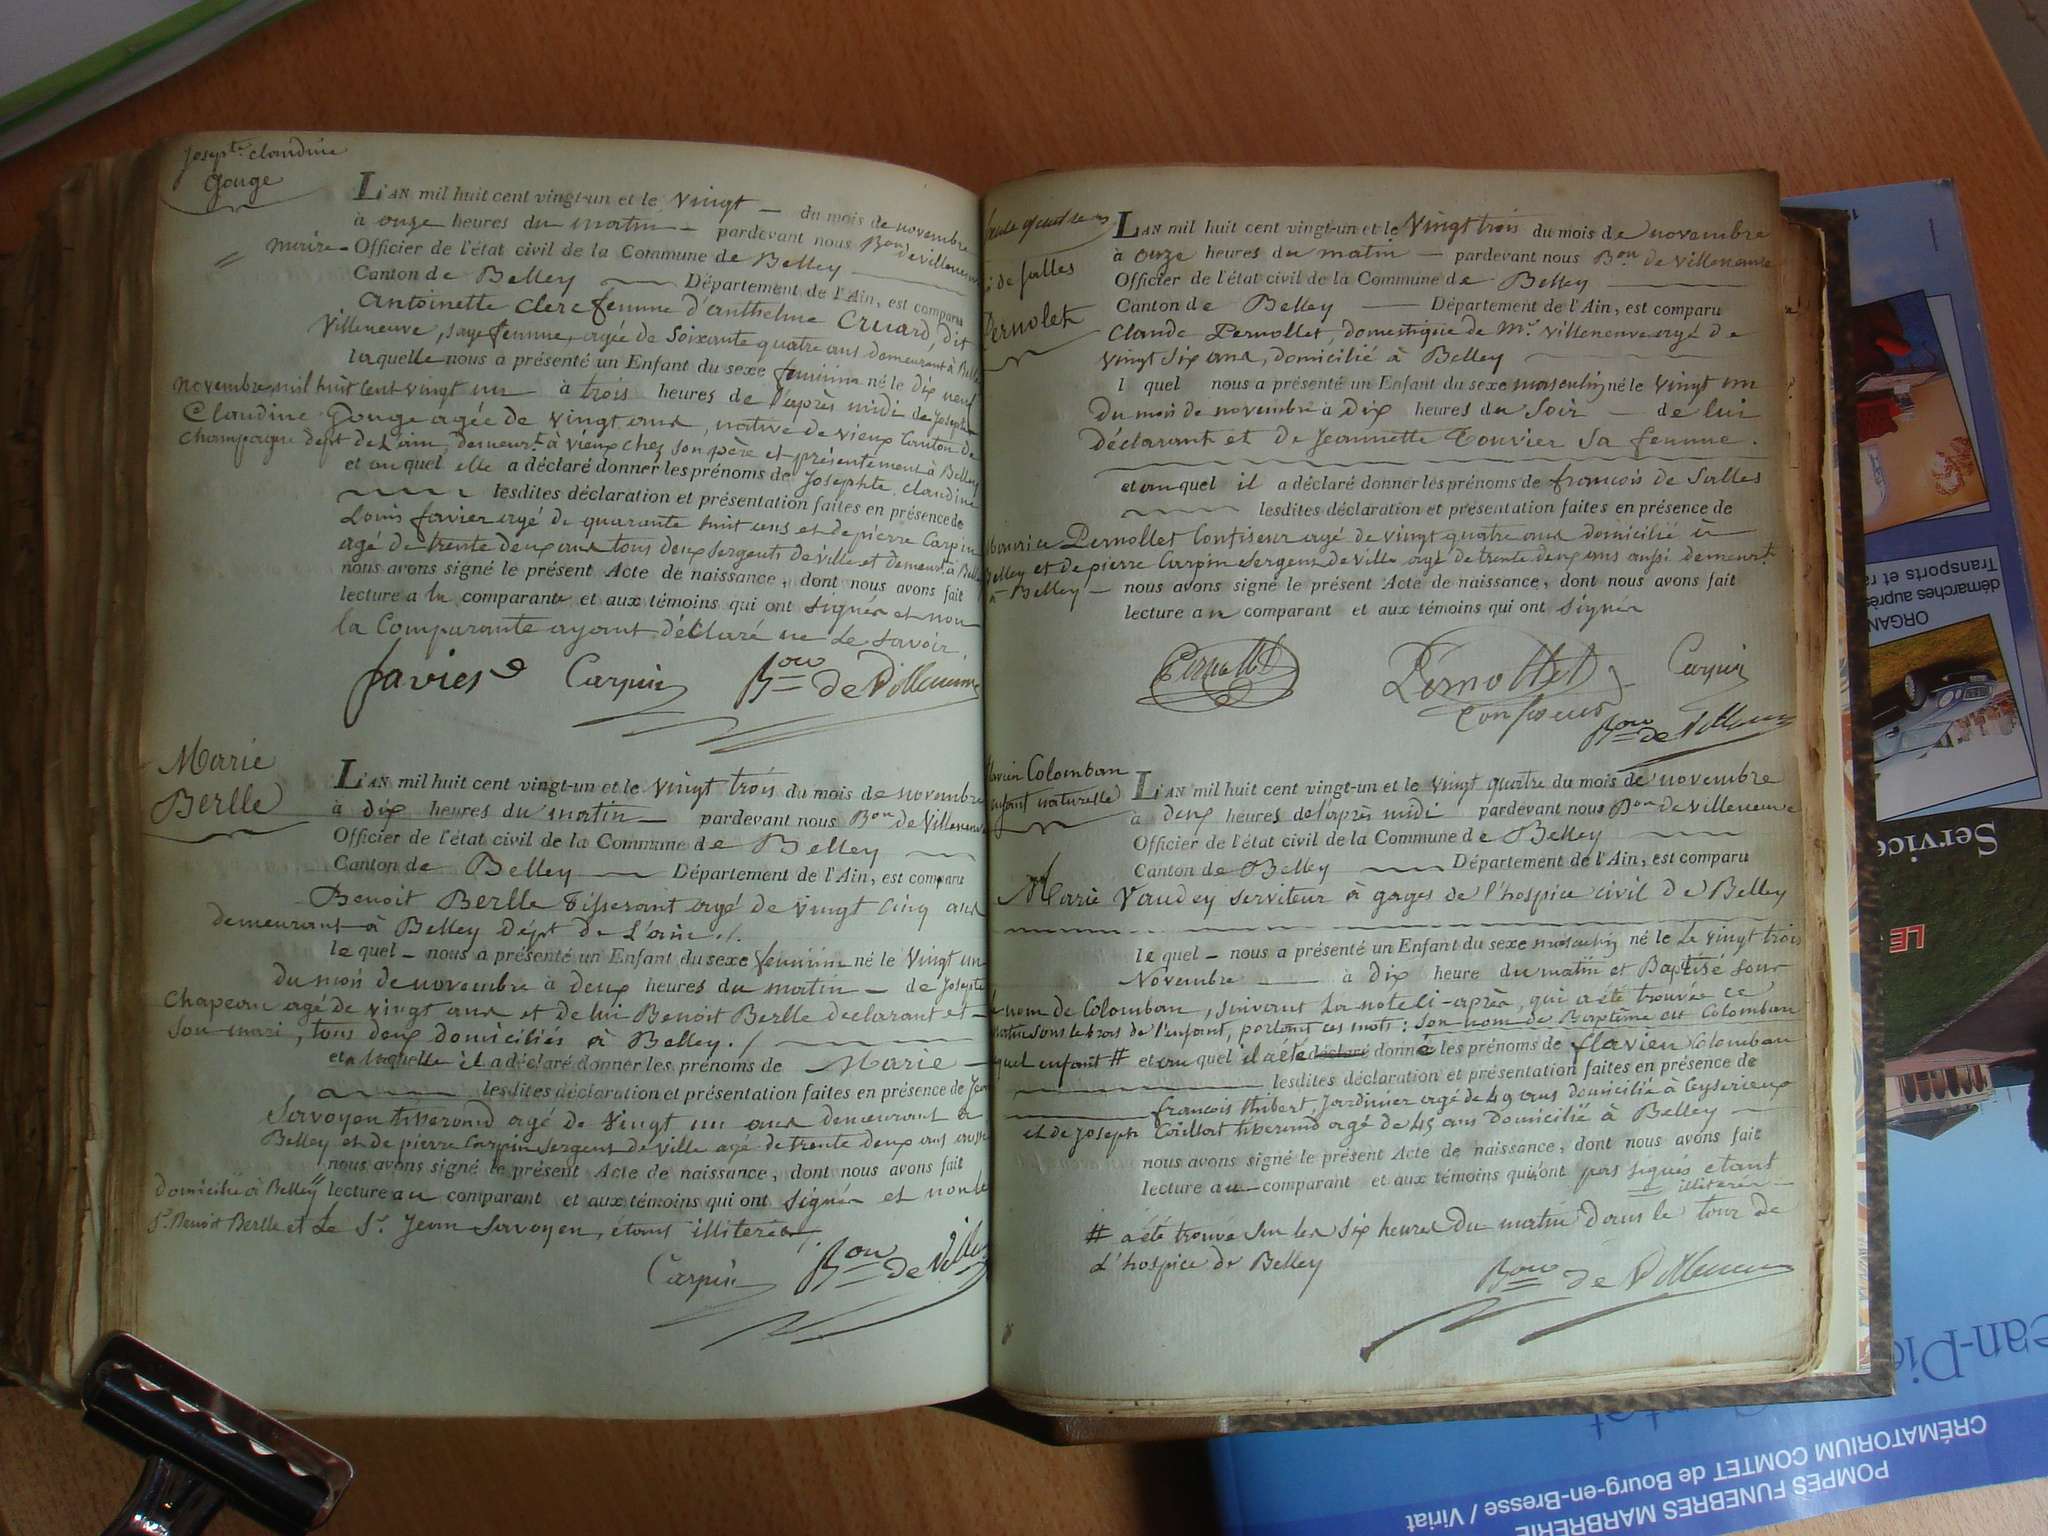 Josephte Claudine
Gouge
L'AN mil huit cent vingt-un et le Vingt — du mois de novembre
à onze heures du matin — pardevant nous Bon de Villeneuve
maire – Officier de l'état civil de la Commune de Belley
Canton de Belley — Département de l'Ain, est comparu
Antoinette Clerc femme d'anthelme Cruard, dit
Villeneuve, sage femme, agée de Soixante quatre ans demeurant à Belley
laquelle nous a présenté un Enfant du sexe feminin né le dix neuf
novembre mil huit cent vingt un — à trois heures de l'après midi de Josephte
Claudine Gouge agée de vingt ans, native de vieux Canton de
Champagne dépt de L'ain, demeurt à vieux chez son père et présentement à Belley
et auquel elle a déclaré donner les prénoms de Josephte Claudine
lesdites déclaration et présentation faites en présence de
Louis favier agé de quarante huit ans et de pierre Carpin
agé de trente deux ans tous deux sergents de ville et demeurt à Belley
nous avons signé le présent Acte de naissance, dont nous avons fait
lecture a la comparante et aux témoins qui ont signés et non
la Comparante ayant déclaré ne le savoir.
favier Carpin Bon de Villeneuve
Marie
Berlle
L'AN mil huit cent vingt-un et le vingt trois du mois de novembre
à dix heures du matin — pardevant nous Bon de Villeneuve
Officier de l'état civil de la Commune de Belley
Canton de Belley — Département de l'Ain, est comparu
Benoit Berlle Tisserant agé de vingt cinq ans
demeurant à Belley dépt de L'ain ./.
le quel – nous a présenté un Enfant du sexe feminin né le Vingt un
du mois de novembre à deux heures du matin — de Josephte
Chapeau agé de vingt ans et de lui Benoit Berlle declarant et
son mari, tous deux domiciliés à Belley ./
et a laquelle il a déclaré donner les prénoms de Marie
lesdites déclaration et présentation faites en présence de Jean
Savoyen tisserand agé de vingt un ans demeurant à
Belley et de pierre Carpin sergent de ville agé de trente deux ans aussi
nous avons signé le présent Acte de naissance, dont nous avons fait
domicilié à Belley lecture au comparant et aux témoins qui ont signés et non le
Sr. Benoit Berlle et Le Sr. Jean Savoyen, étant illiterés ./.
Carpin Bon de Villeneuve
de falles
Pernolet
L'AN mil huit cent vingt-un et le Vingt trois du mois de novembre
à onze heures du matin — pardevant nous Bon de Villeneuve
Officier de l'état civil de la Commune de Belley
Canton de Belley — Département de l'Ain, est comparu
Claude Pernollet, domestique de Mr. Villeneuve agé de
vingt six ans, domicilié à Belley
l quel nous a présenté un Enfant du sexe masculin né le vingt un
du mois de novembre à dix heures du Soir — de lui
déclarant et de Jeannette Touvier Sa femme.
et auquel il a déclaré donner les prénoms de françois de Salles
lesdites déclaration et présentation faites en présence de
Maurice Pernollet Confiseur agé de vingt quatre ans domicilié à
Belley et de pierre Carpin sergent de ville agé de trente deux ans aussi demeurt
à Belley — nous avons signé le présent Acte de naissance, dont nous avons fait
lecture au comparant et aux témoins qui ont signés
Pernollet Pernollet Carpin
Confiseur
Bon de Villeneuve
flavien Colomban
enfant naturelle
L'AN mil huit cent vingt-un et le vingt quatre du mois de novembre
à deux heures de l'après midi pardevant nous Bon de Villeneuve
Officier de l'état civil de la Commune de Belley
Canton de Belley — Département de l'Ain, est comparu
Marie Vaudey serviteur à gages de l'hospice civil de Belley
le quel – nous a présenté un Enfant du sexe masculin né le Le vingt trois
Novembre — à dix heure du matin et Baptisé sous
le nom de Colomban, suivant la note ci-après, qui a été trouvée ce
matin sous le bras de l'enfant, portant ces mots : son nom de Baptême est Colomban
lequel enfant # et au quel il a été déclaré donné les prénoms de flavien Colomban
lesdites déclaration et présentation faites en présence de
francois thibert, Jardinier agé de 49 ans domicilié à Ceyserieux
et de Joseph Coillart tisserand agé de 45 ans domicilié à Belley
nous avons signé le présent Acte de naissance, dont nous avons fait
lecture au comparant et aux témoins qui ont pas signés etant
illiterés
# a été trouvé sur les six heures du matin dans le tour de
L'hospice de Belley
Bon de Villeneuve
démarches auprès
Transports et ra
ORGAN
Service
LE
ean-Pie
CRÉMATORIUM COMTET de Bourg-en-Bresse / Viriat
POMPES FUNEBRES MARBRERIE